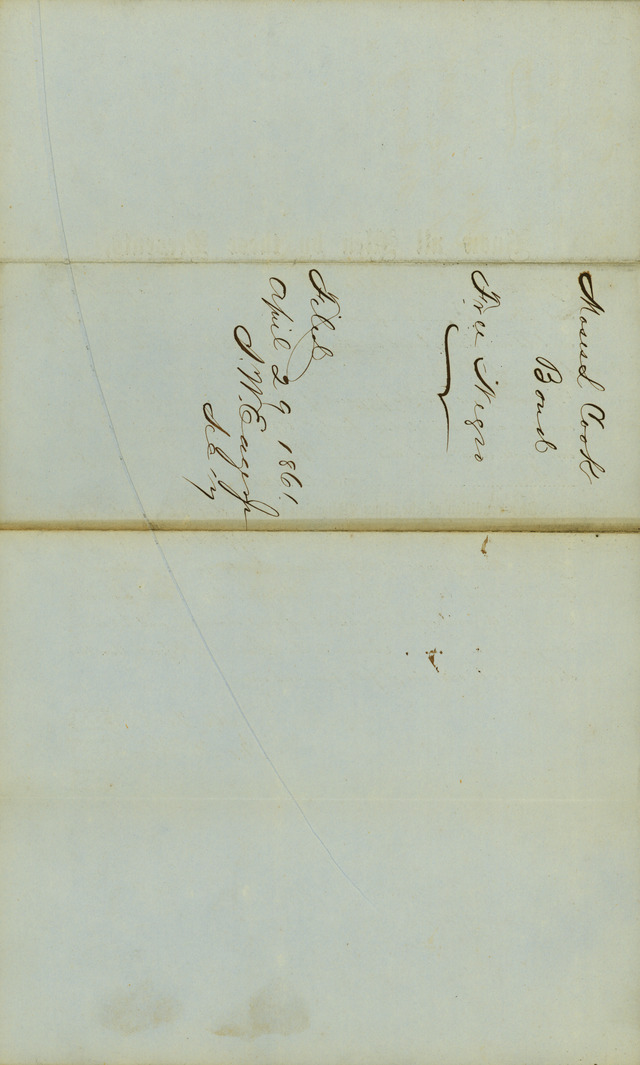 Moses L Cook
Bond
Free Negro
Filed
April 29 1861.
J. W. Eager Jr